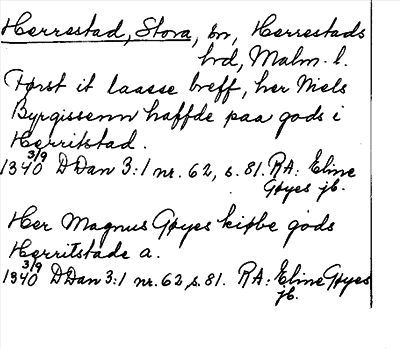 Herrestad, Stora, sn, Herrestads
hrd, Malm. l.
Først it laasse breff, her Niels
Byrgissenn haffde paa gods i
Herritstad.
1340 3/9 DDan 3:1 nr. 62, s. 81. RA: Eline
Gøyes jb.
Her Magnus Gøyes kiøbe gods
Herritstade a.
1340 3/9 DDan 3:1 nr. 62, s. 81. RA: Eline Gøyes
jb.